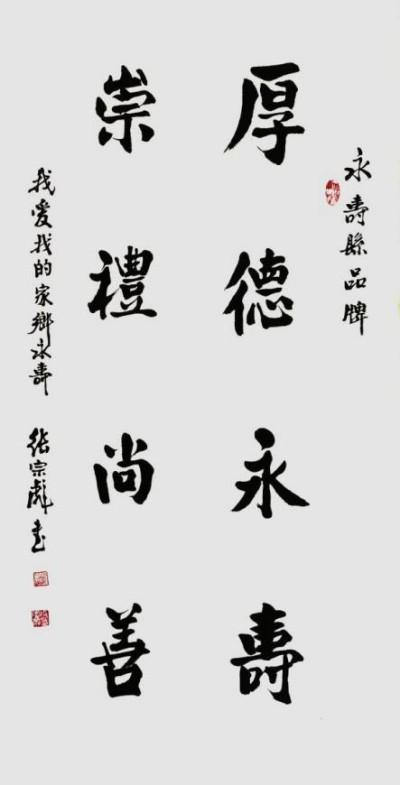 永壽縣品牌
厚德永壽
崇禮尚善
我爱我的家鄉永壽
張宗彪书